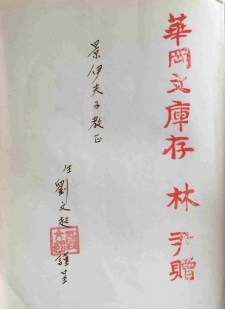 華岡文庫存 林尹贈
景伊夫子教正
生劉文起謹呈